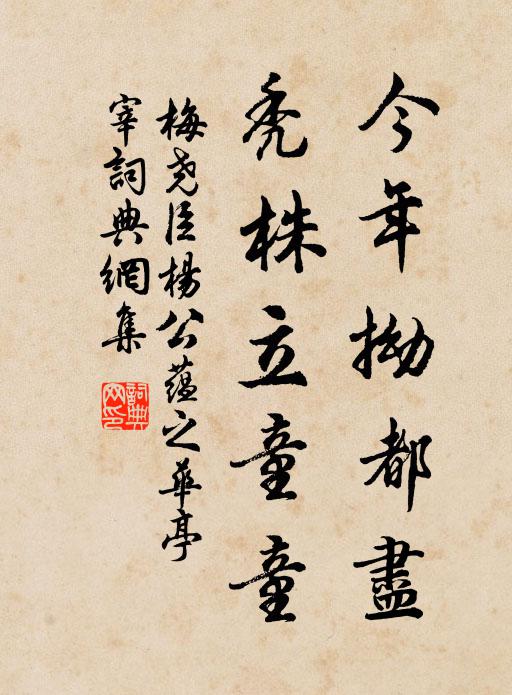 今年拗都盡
禿株立童童
梅堯臣楊公蘊之華亭
宰詞典網集
詞典
网印